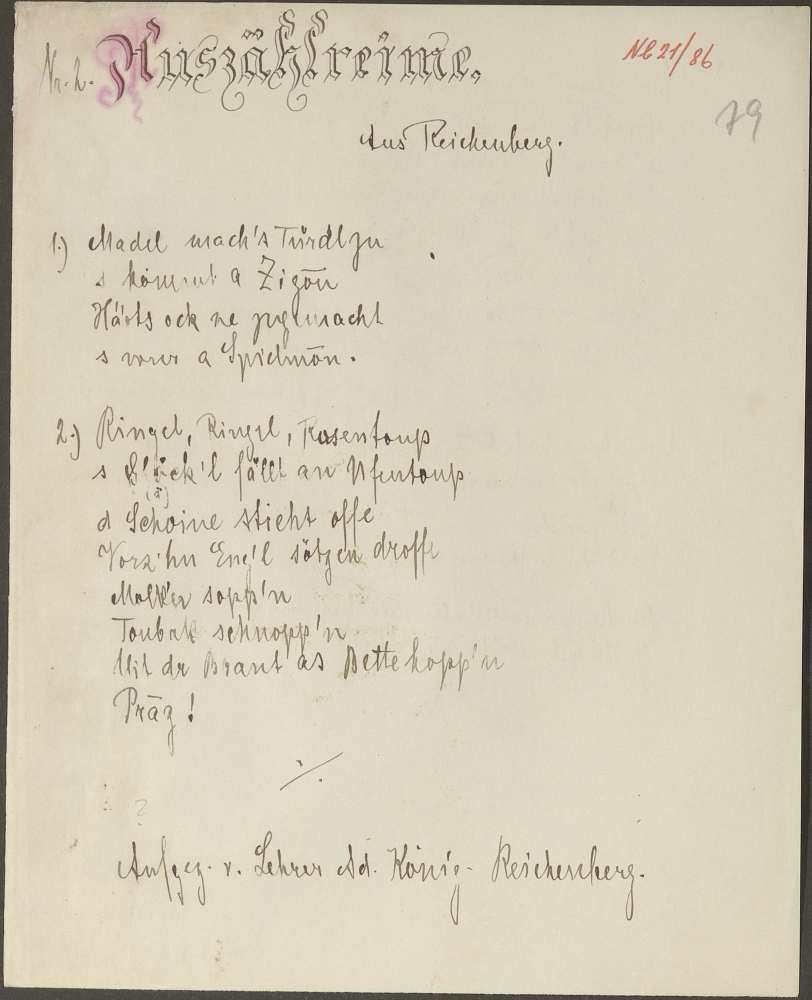 Nr. 2. Auszählreime.
NB 21/86
79
Aus Reichenberg.
1.) Madel mach's Türdl zu
s kömmt a Zigōn
Härts ock ne zugemacht
s wour a Spielmōn.
2.) Ringel, Ringel, Rusentoup
s fällt an Ufentoup
(ä)
d Schoine stieht offe
Vorz'hn Eng'l sötzen droffe
Molk'n sopp'n
Toubak schnopp'n
Mit dr Braut as Bette hopp'n
Präz!
Aufgez. v. Lehrer Ad. König - Reichenberg.